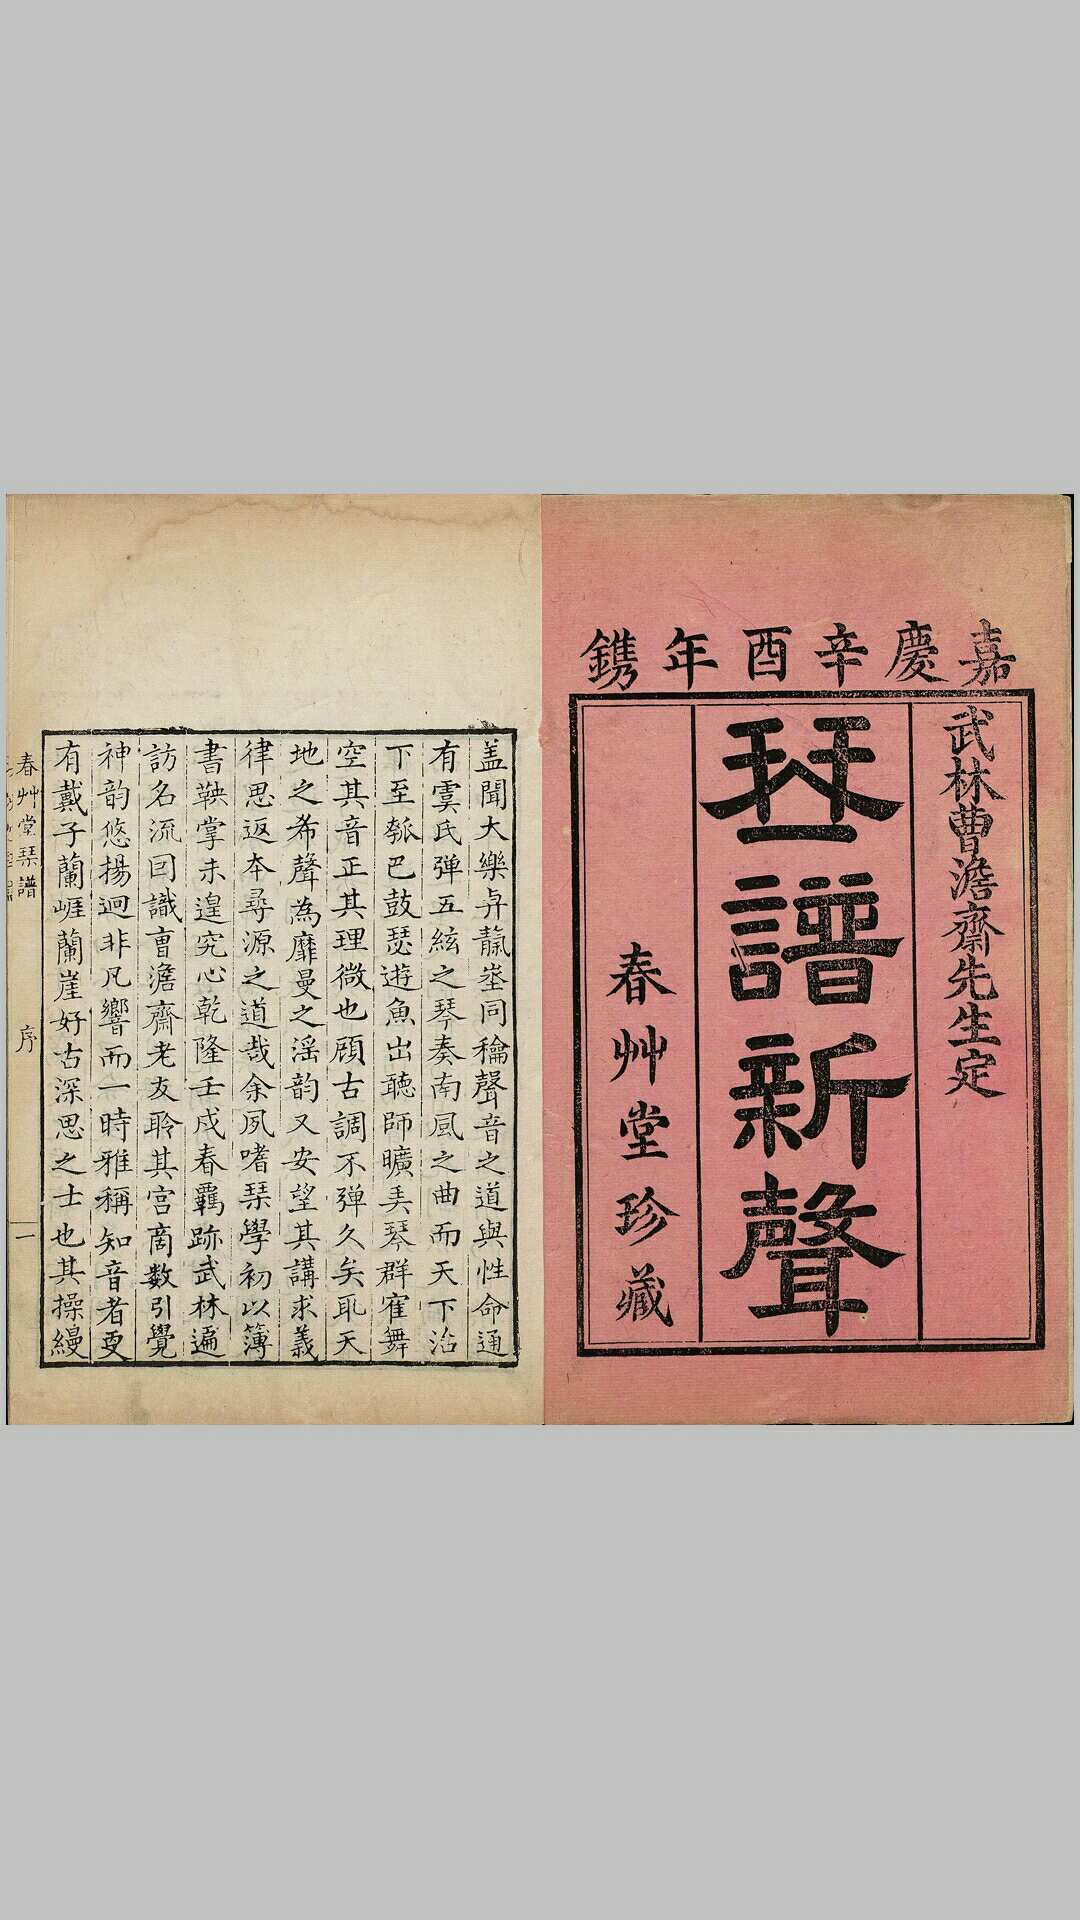 嘉慶辛酉年鐫
武林曹澹齋先生定
琹譜新聲
春艸堂珍藏
盖聞大樂與
同龢聲音之道與性命通
有虞氏弹五絃之琴奏南風之曲而天下治
下至瓠巴鼓瑟遊魚出聽師曠美琴群寉舞
空其音正其理微也顧古調不彈久矣耴天
地之希聲為靡曼之滛韵又安望其講求義
律思返本尋源之道哉余夙嗜琹學初以簿
書鞅掌未遑究心乾隆壬戍春羁跡武林遍
訪名流囙識曺澹齋老友聆其宫商數引覺
神韵悠揚迥非凡響而一時雅稱知音者更
有戴子蘭崕蘭崖好古深思之士也其操縵
春艸堂琹譜
序
一